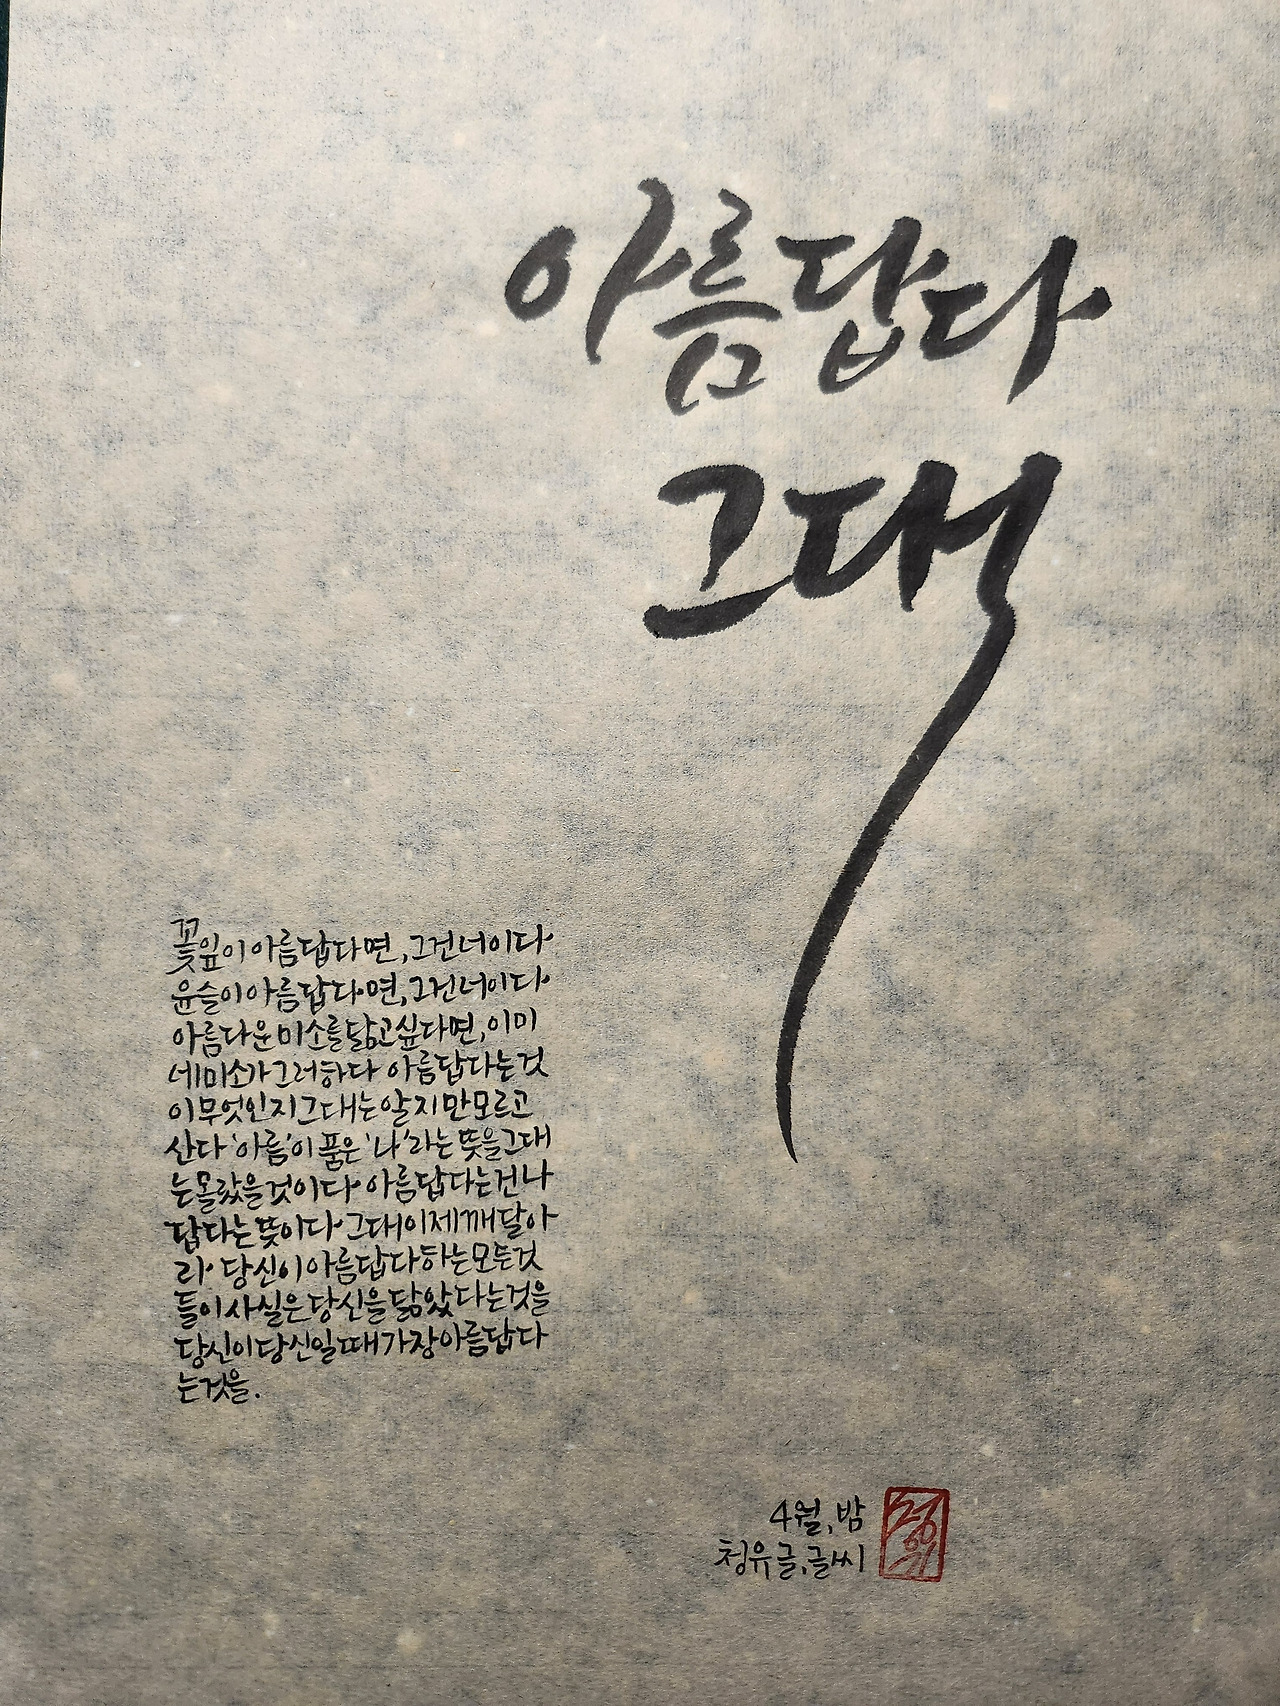 아름답다
그대
꽃잎이 아름답다면, 그건 너이다
윤슬이 아름답다면, 그건 너이다
아름다운 미소를 닮고 싶다면, 이미
네 미소가 그러하다 아름답다는 것
이 무엇인지 그대는 알지만 모르고
산다 '아름'이 품은 '나'라는 뜻을 그대
는 몰랐을 것이다 아름답다는 건 나
답다는 뜻이다 그대 이제 깨달아
라 당신이 아름답다 하는 모든 것
들이 사실은 당신을 닮았다는 것을
당신이 당신일 때 가장 아름답다
는 것을.
4월, 밤
청유 글, 글씨